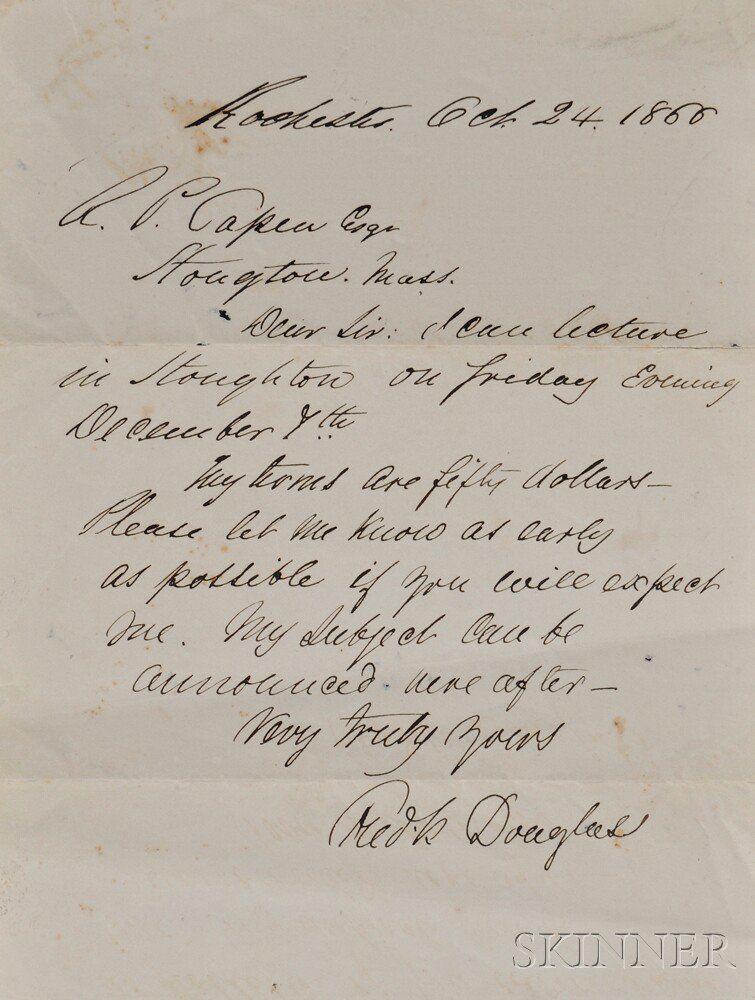 Rochester. Oct. 24. 1866
R. P. Capen Esqr
Stougton. Mass.
Dear Sir: I can lecture
in Stoughton on friday Evening
December 7th
My terms are fifty dollars—
Please let me know as early
as possible if you will expect
me. My Subject can be
announced here after—
Very truly yours
Fred.k Douglass
SKINNER